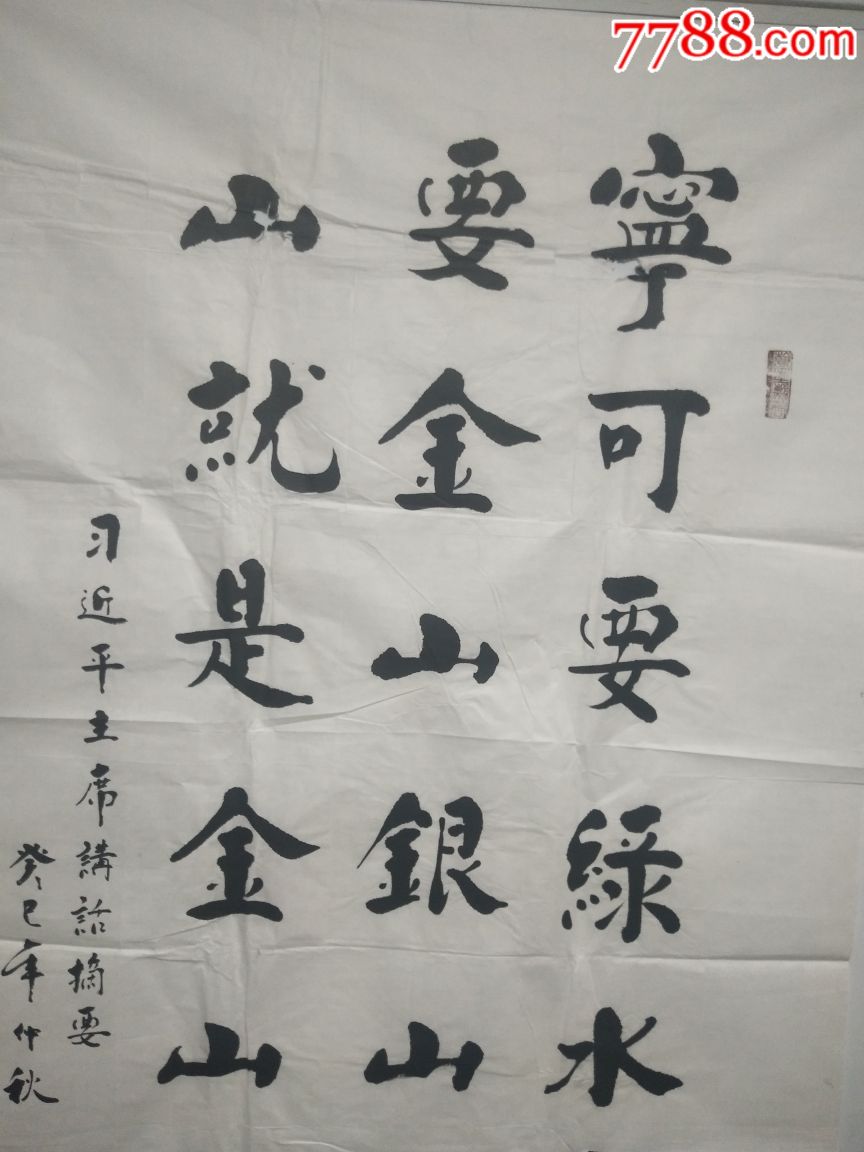 7788.com
寧可要綠水
要金山銀山
山就是金山
习近平主席講話摘要
癸巳年仲秋